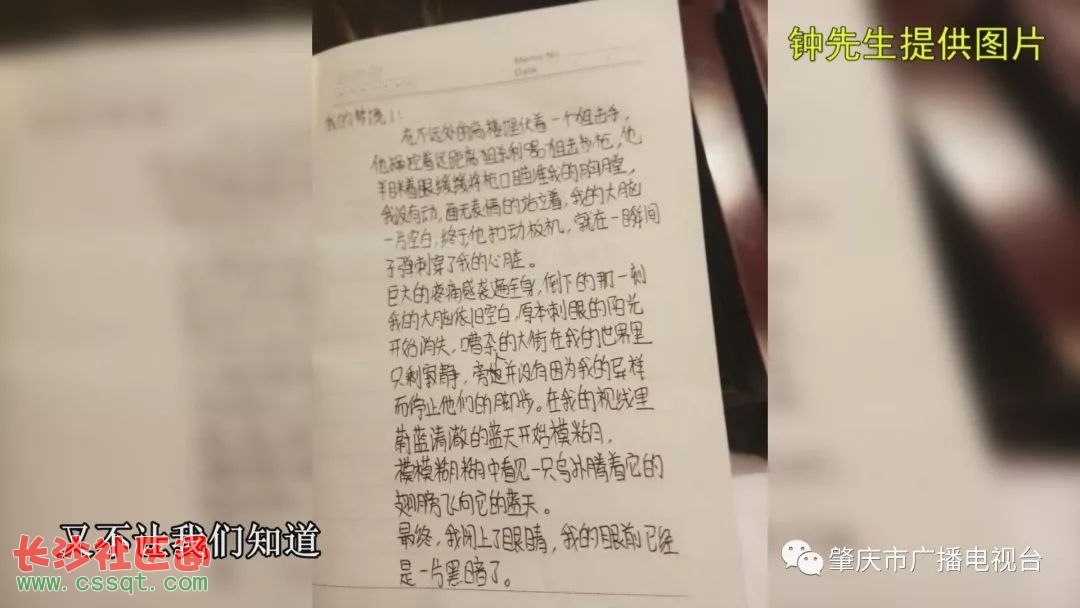 钟先生提供图片
Memo No.
Date
我的梦境1:
在不远处的高楼埋伏着一个狙击手,
他操控着远距离狙杀利器狙击步枪,他
眯着眼缓缓将枪口瞄准我的胸膛,
我没有动,面无表情的站立着,我的大脑
一片空白,终于,他扣动板机,就在一瞬间
子弹刺穿了我的心脏。
巨大的疼痛感袭遍全身,倒下的那一刻
我的大脑依旧空白,原本刺眼的阳光
开始消失,嘈杂的大街在我的世界里
只剩寂静,旁边并没有因为我的异样
而停止他们的脚步。在我的视线里
蔚蓝清澈的蓝天开始模糊,
模模糊糊中看见一只鸟扑腾着它的
翅膀飞向它的蓝天。
最终,我闭上了眼睛,我的眼前已经
是一片黑暗了。
又不让我们知道
长沙社区圈
www.cssqt.com
肇庆市广播电视台